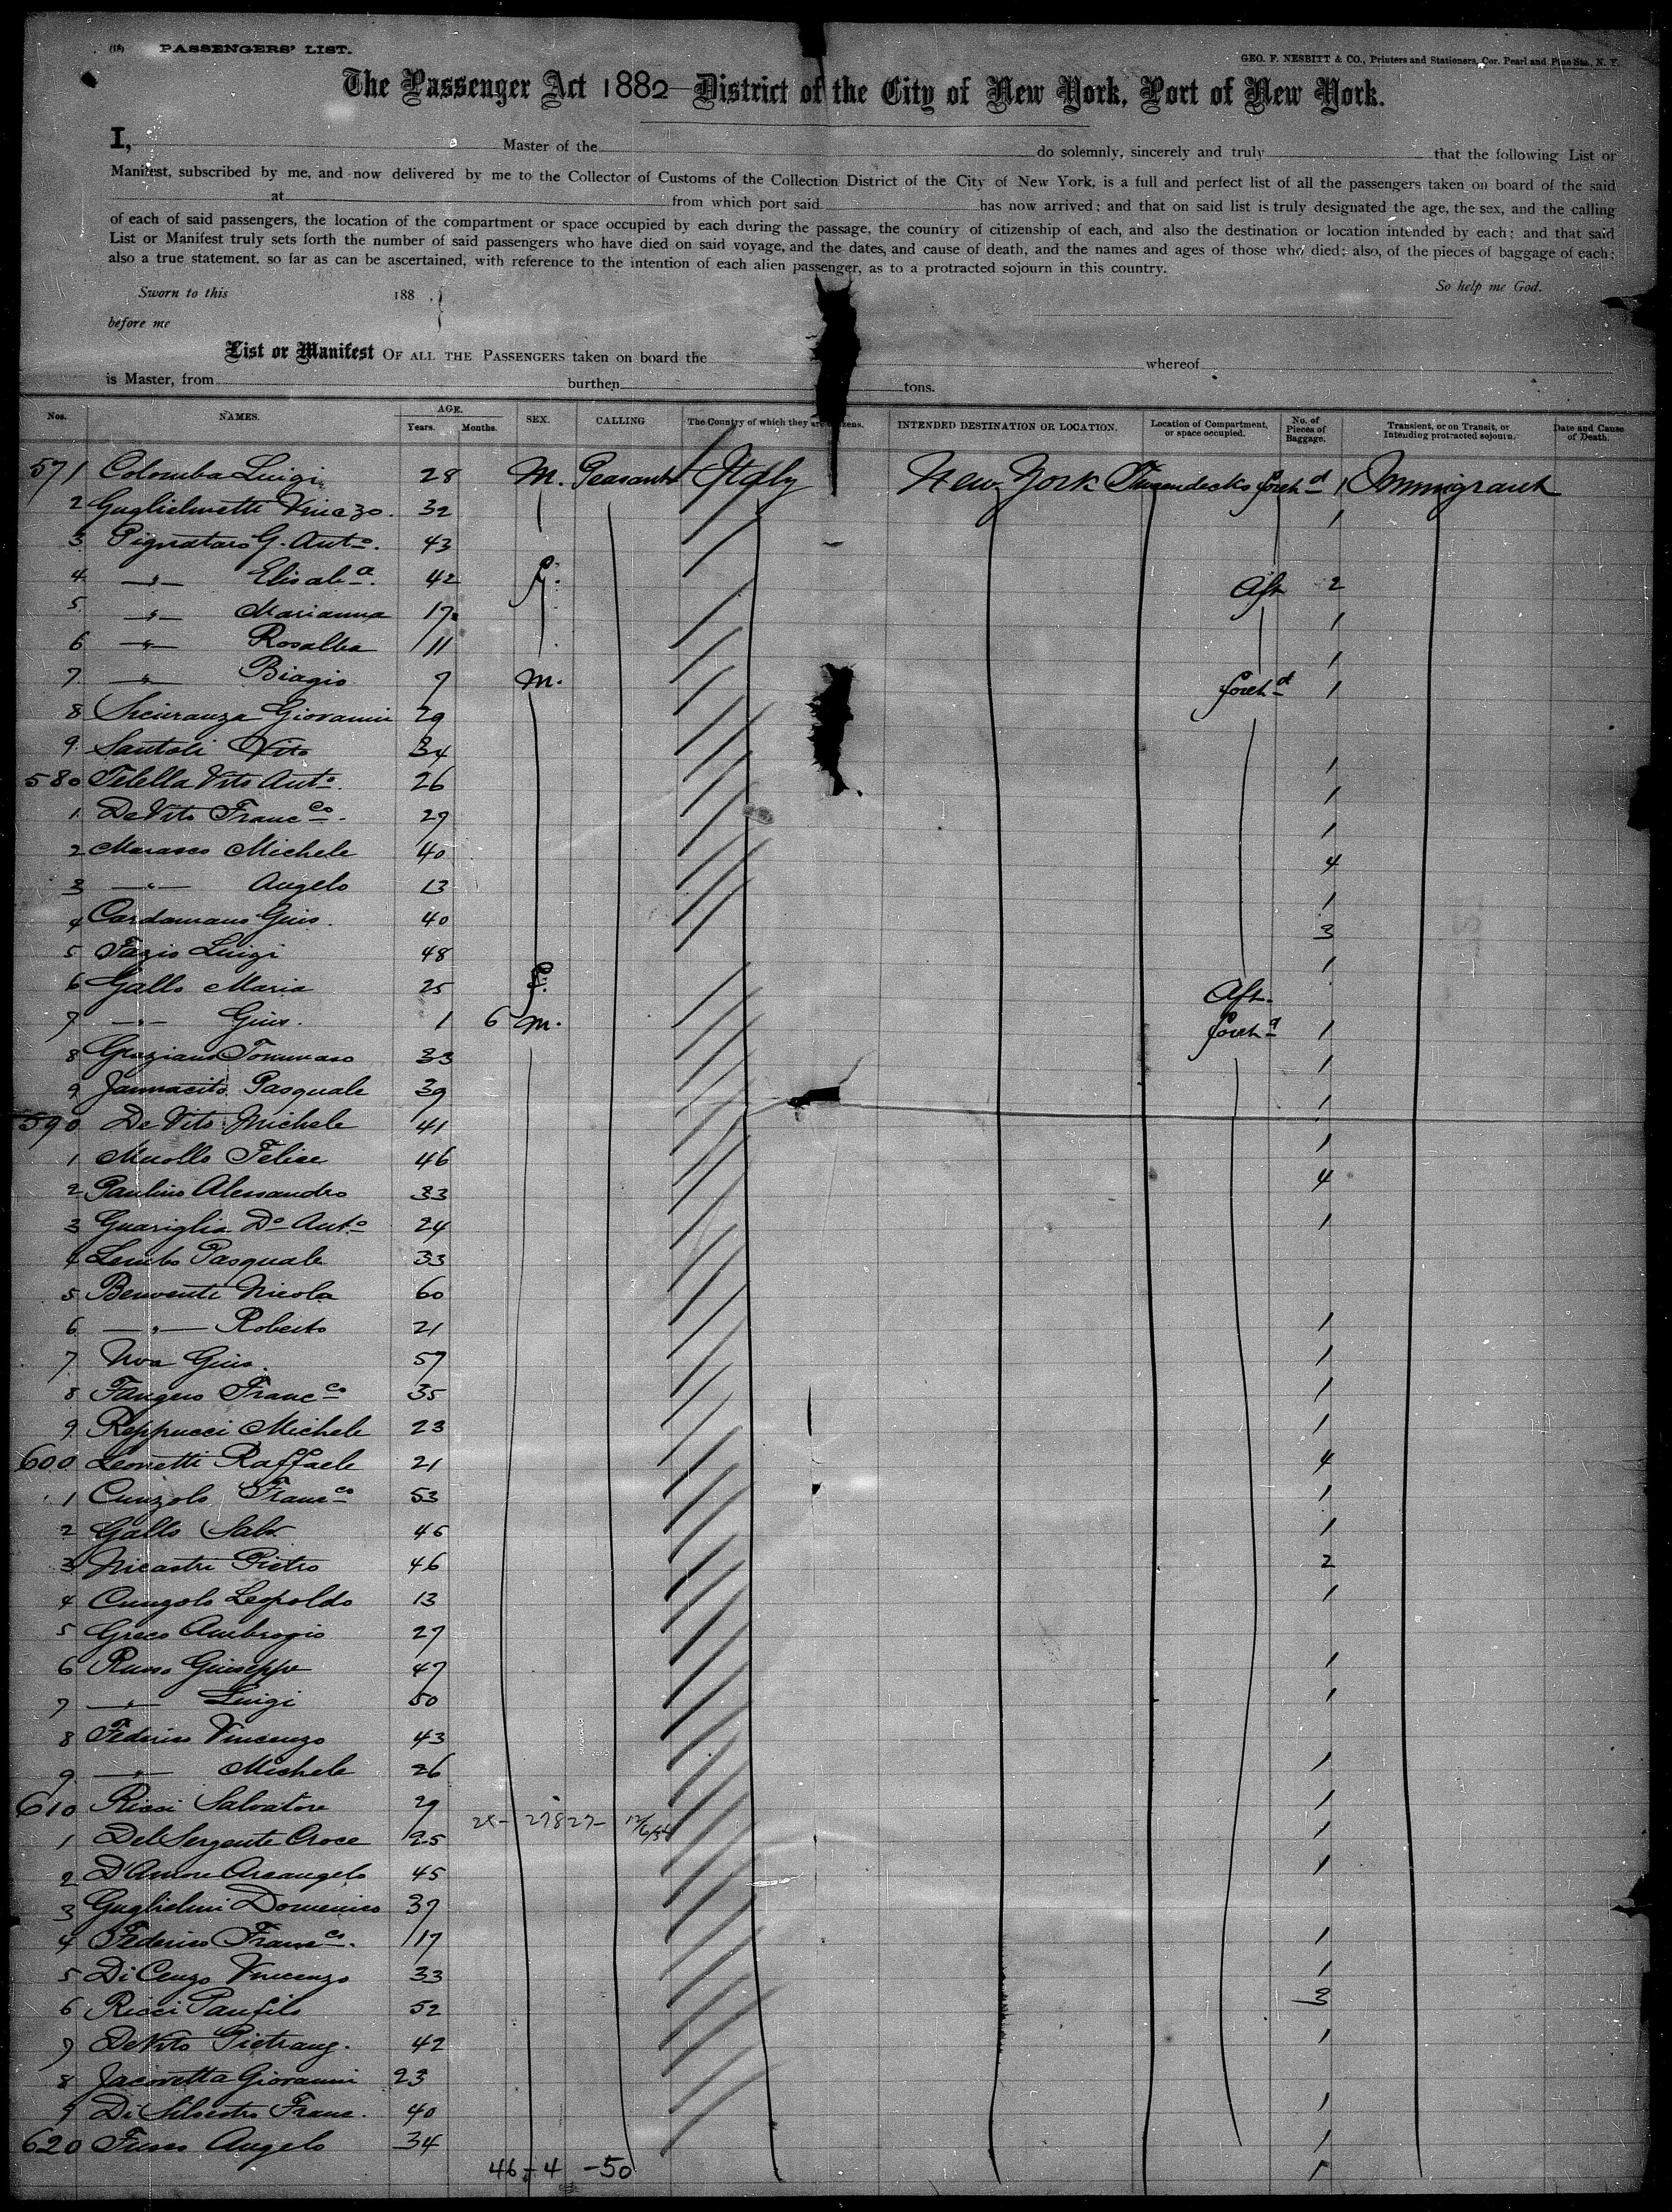 (18) PASSENGERS' LIST.
GEO. F. NESBITT & CO., Printers and Stationers, Cor. Pearl and Pine Sts., N. Y.
The Passenger Act 1882 District of the City of New York, Port of New York.
I, Master of the do solemnly, sincerely and truly that the following List or
Manifest, subscribed by me, and now delivered by me to the Collector of Customs of the Collection District of the City of New York, is a full and perfect list of all the passengers taken on board of the said
at from which port said has now arrived; and that on said list is truly designated the age, the sex, and the calling
of each of said passengers, the location of the compartment or space occupied by each during the passage, the country of citizenship of each, and also the destination or location intended by each; and that said
List or Manifest truly sets forth the number of said passengers who have died on said voyage, and the dates, and cause of death, and the names and ages of those who died; also, of the pieces of baggage of each;
also a true statement, so far as can be ascertained, with reference to the intention of each alien passenger, as to a protracted sojourn in this country.
Sworn to this 188 . } So help me God.
before me
List or Manifest OF ALL THE PASSENGERS taken on board the whereof
is Master, from burthen tons.
Nos. NAMES. AGE. Years. Months. SEX. CALLING The Country of which they are citizens. INTENDED DESTINATION OR LOCATION. Location of Compartment, or space occupied. No. of Pieces of Baggage. Transient, or on Transit, or Intending protracted sojourn. Date and Cause of Death.
571 Colomba Luigi 28 M. Peasant Italy New York Tweendecks foreh d 1 Immigrant
2 Guglielmetti Vinczo. 32 1
3 Pignataro G. Anto. 43
4 " Elisab a. 42 f. Aft 2
5 " Marianna 17 1
6 " Rosalba 11 1
7 " Biagio 7 M. foreh d 1
8 Sicuranza Giovanni 29
9 Santoli Vito 34 1
580 Telella Vito Anto. 26 1
1 De Vito Franc co. 29 1
2 Marasco Michele 40 4
3 " Angelo 13 1
4 Cardamano Gius. 40 3
5 Fazio Luigi 48 1
6 Gallo Maria 25 f. Aft.
7 " Gius. 1 6 M. foreh d 1
8 Graziano Tommaso 33 1
9 Jannacito Pasquale 39 1
590 De Vito Michele 41 1
1 Muollo Felice 46 4
2 Paulino Alessandro 33
3 Guariglia Do Anto 24 1
4 Lembo Pasquale 33
5 Benventi Nicola 60
6 " Roberto 21 1
7 Gius. 57 1
8 Franc co 35 1
9 Reppucci Michele 23 1
600 Leonetti Raffaele 21 4
1 Cunzolo Franc co 53 1
2 Gallo Salv. 46 1
3 Nicastri Pietro 46 2
4 Cunzolo Leopoldo 13 1
5 Greco Ambrogio 27
6 Russo Giuseppe 47 1
7 " Luigi 50 1
8 Federico Vincenzo 43
9 " Michele 26 1
610 Ricci Salvatore 29 1
1 Del Sergente Croce 25 1
2 D'Amore Arcangelo 45 1
3 Guglielmi Domenico 37
4 Federico Franc co. 17 1
5 Di Cenzo Vincenzo 33 1
6 Ricci Panfilo 52 3
7 De Vito Pietrang. 42 1
8 Jacovetta Giovanni 23
9 Di Silvestro Franc. 40 1
620 Fusco Angelo 34 1
46 - 4 - 50 1